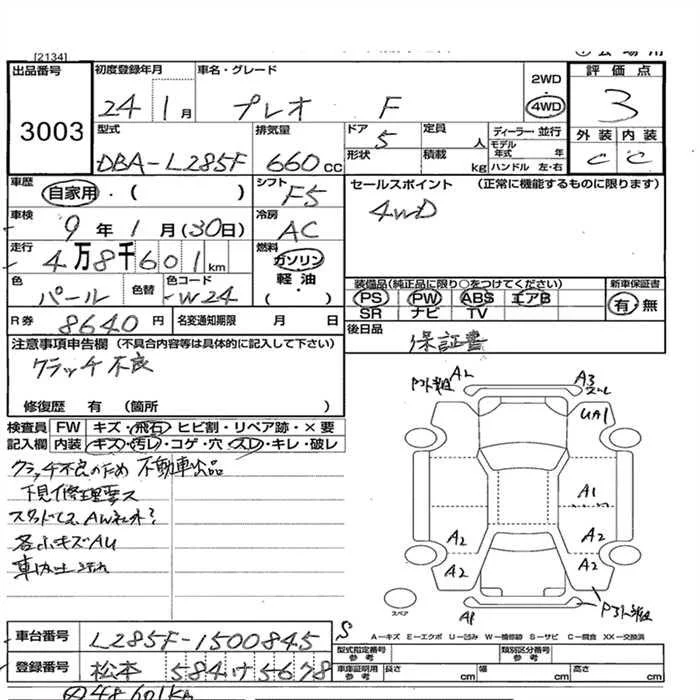 [2134]
出品番号
3003
初度登録年月
24 1月
車名・グレード
プレオ F
2WD
4WD
評価点
3
外装 内装
C C
型式
DBA-L285F
排気量
660cc
ドア 5
形状
定員 人
積載 kg
ディーラー・並行
モデル年式 年
ハンドル 左・右
車歴
自家用・( )
シフト F5
セールスポイント (正常に機能するものに限ります)
4WD
車検
9年1月(30日)
冷房
AC
走行
4万8千601km
燃料
ガソリン
軽油・
( )
色
パール
色替
色コード
W24
装備品(純正品に限り○をつけてください)
PS PW ABS エアB
SR ナビ TV
新車保証書
有・無
R券 8640円
名変通知期限 月 日
後日品
保証書
注意事項申告欄 (不具合内容等は具体的に記入して下さい)
クラッチ不良
修復歴 有 (箇所 )
検査員記入欄
FW キズ・飛石・ヒビ割・リペア跡・×要
内装 キズ・汚レ・コゲ・穴・スレ・キレ・破レ
クラッチ不良のため 不動車出品
下見
スタッドレス、AW社外?
各小キズAU
A2
A3
UA1
A1
A2 A2
A2 A2
A1
スペア
A−キズ E−エクボ U−凹み W−補修跡 S−サビ C−腐食 XX−交換済
車台番号
L285F-1500845
S
登録番号
松本 584 け 5678
型式指定番号 参考
類別区分番号 参考
車庫証明用 参考
長さ cm
幅 cm
高さ cm
48,601km